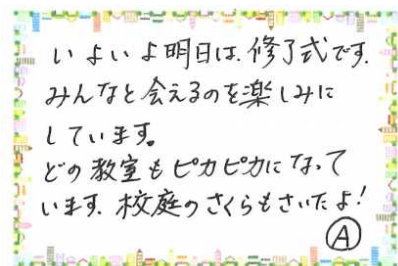 いよいよ明日は、修了式です。
みんなと会えるのを楽しみに
しています。
どの教室もピカピカになって
います。校庭のさくらもさいたよ!
A